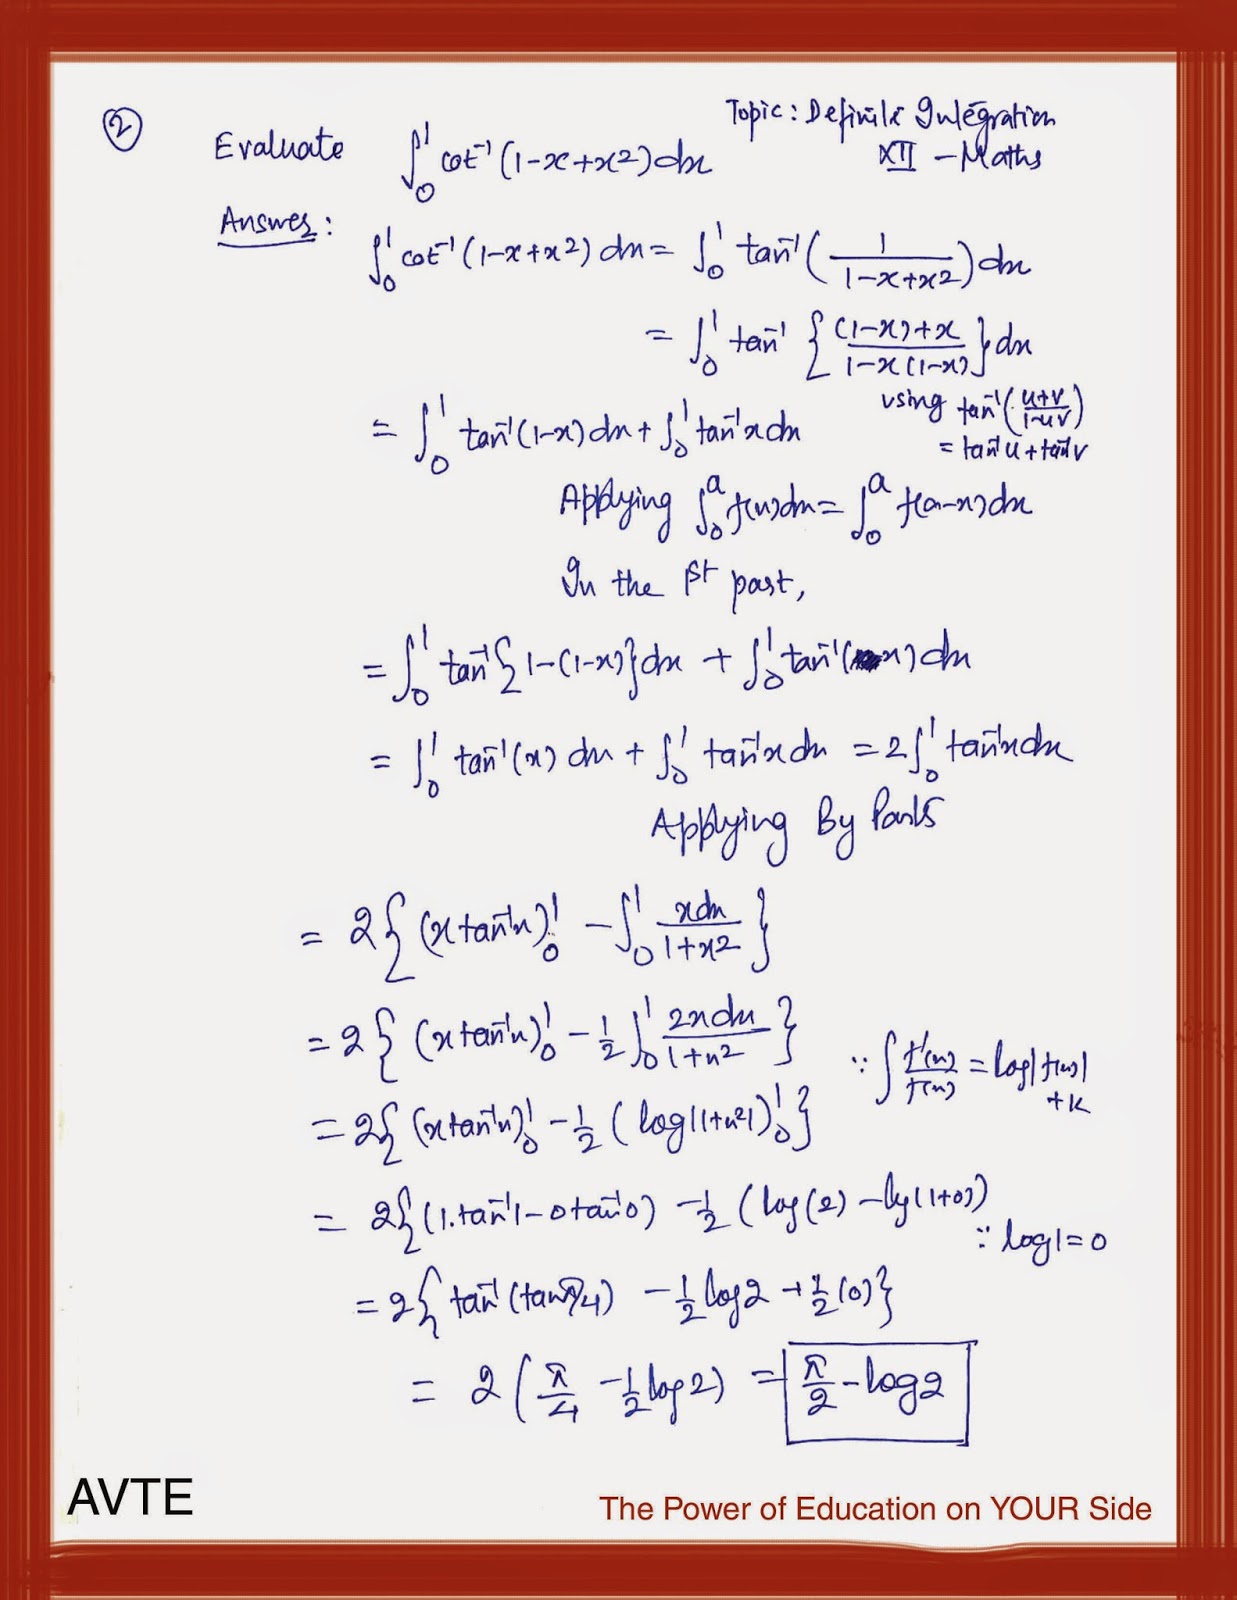 ② Evaluate ∫₀¹ cot⁻¹(1-x+x²)dx
Topic: Definite Integration
XII - Maths
Answer:
∫₀¹ cot⁻¹(1-x+x²) dx = ∫₀¹ tan⁻¹(1/(1-x+x²))dx
= ∫₀¹ tan⁻¹ {((1-x)+x)/(1-x(1-x))}dx
using tan⁻¹((u+v)/(1-uv))
= tan⁻¹u + tan⁻¹v
= ∫₀¹ tan⁻¹(1-x)dx + ∫₀¹ tan⁻¹x dx
Applying ∫₀ᵃ f(x)dx = ∫₀ᵃ f(a-x)dx
In the Ist part,
= ∫₀¹ tan⁻¹{1-(1-x)}dx + ∫₀¹ tan⁻¹(x)dx
= ∫₀¹ tan⁻¹(x) dx + ∫₀¹ tan⁻¹x dx = 2∫₀¹ tan⁻¹x dx
Applying By Parts
= 2{(x tan⁻¹x)₀¹ - ∫₀¹ xdx/(1+x²)}
= 2{(x tan⁻¹x)₀¹ - 1/2 ∫₀¹ 2xdx/(1+x²)}
∵ ∫ f'(x)/f(x) = log|f(x)|
+K
= 2{(x tan⁻¹x)₀¹ - 1/2 (log|1+x²|)₀¹}
= 2{(1.tan⁻¹1 - 0tan⁻¹0) - 1/2 (log(2) - log(1+0))
∵ log1 = 0
= 2{tan⁻¹(tan π/4) - 1/2 log2 + 1/2 (0)}
= 2(π/4 - 1/2 log2) = π/2 - log2
AVTE
The Power of Education on YOUR Side